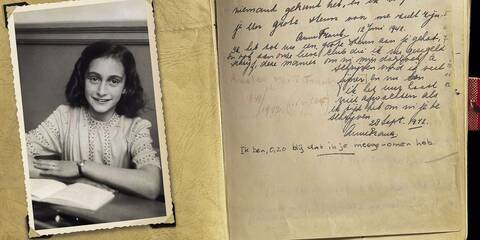 niemand gekund heb, en ik
je een grote steun voor me zult zijn.
Anne Frank. 12 Juni 1942.
Ik heb tot nu een grote steun aan je gehad,
en ook aan onze lieve club die ik nu geregeld
schrijf, deze manier om in mijn dagboek te
schrijven vind ik veel
fijner en nu kan
ik het uur haast
niet afwachten als
ik tijd heb om in je te
schrijven
28 Sept. 1942.
Anne Frank.
Ik ben, O, zo blij dat in je meegenomen heb.